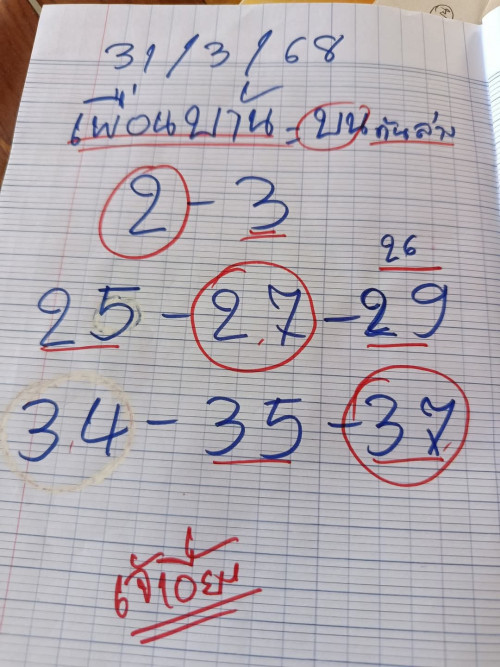 31/3/68
เพื่อนบ้าน = บน กันล่าง
2 - 3
26
25 - 27 - 29
34 - 35 - 37